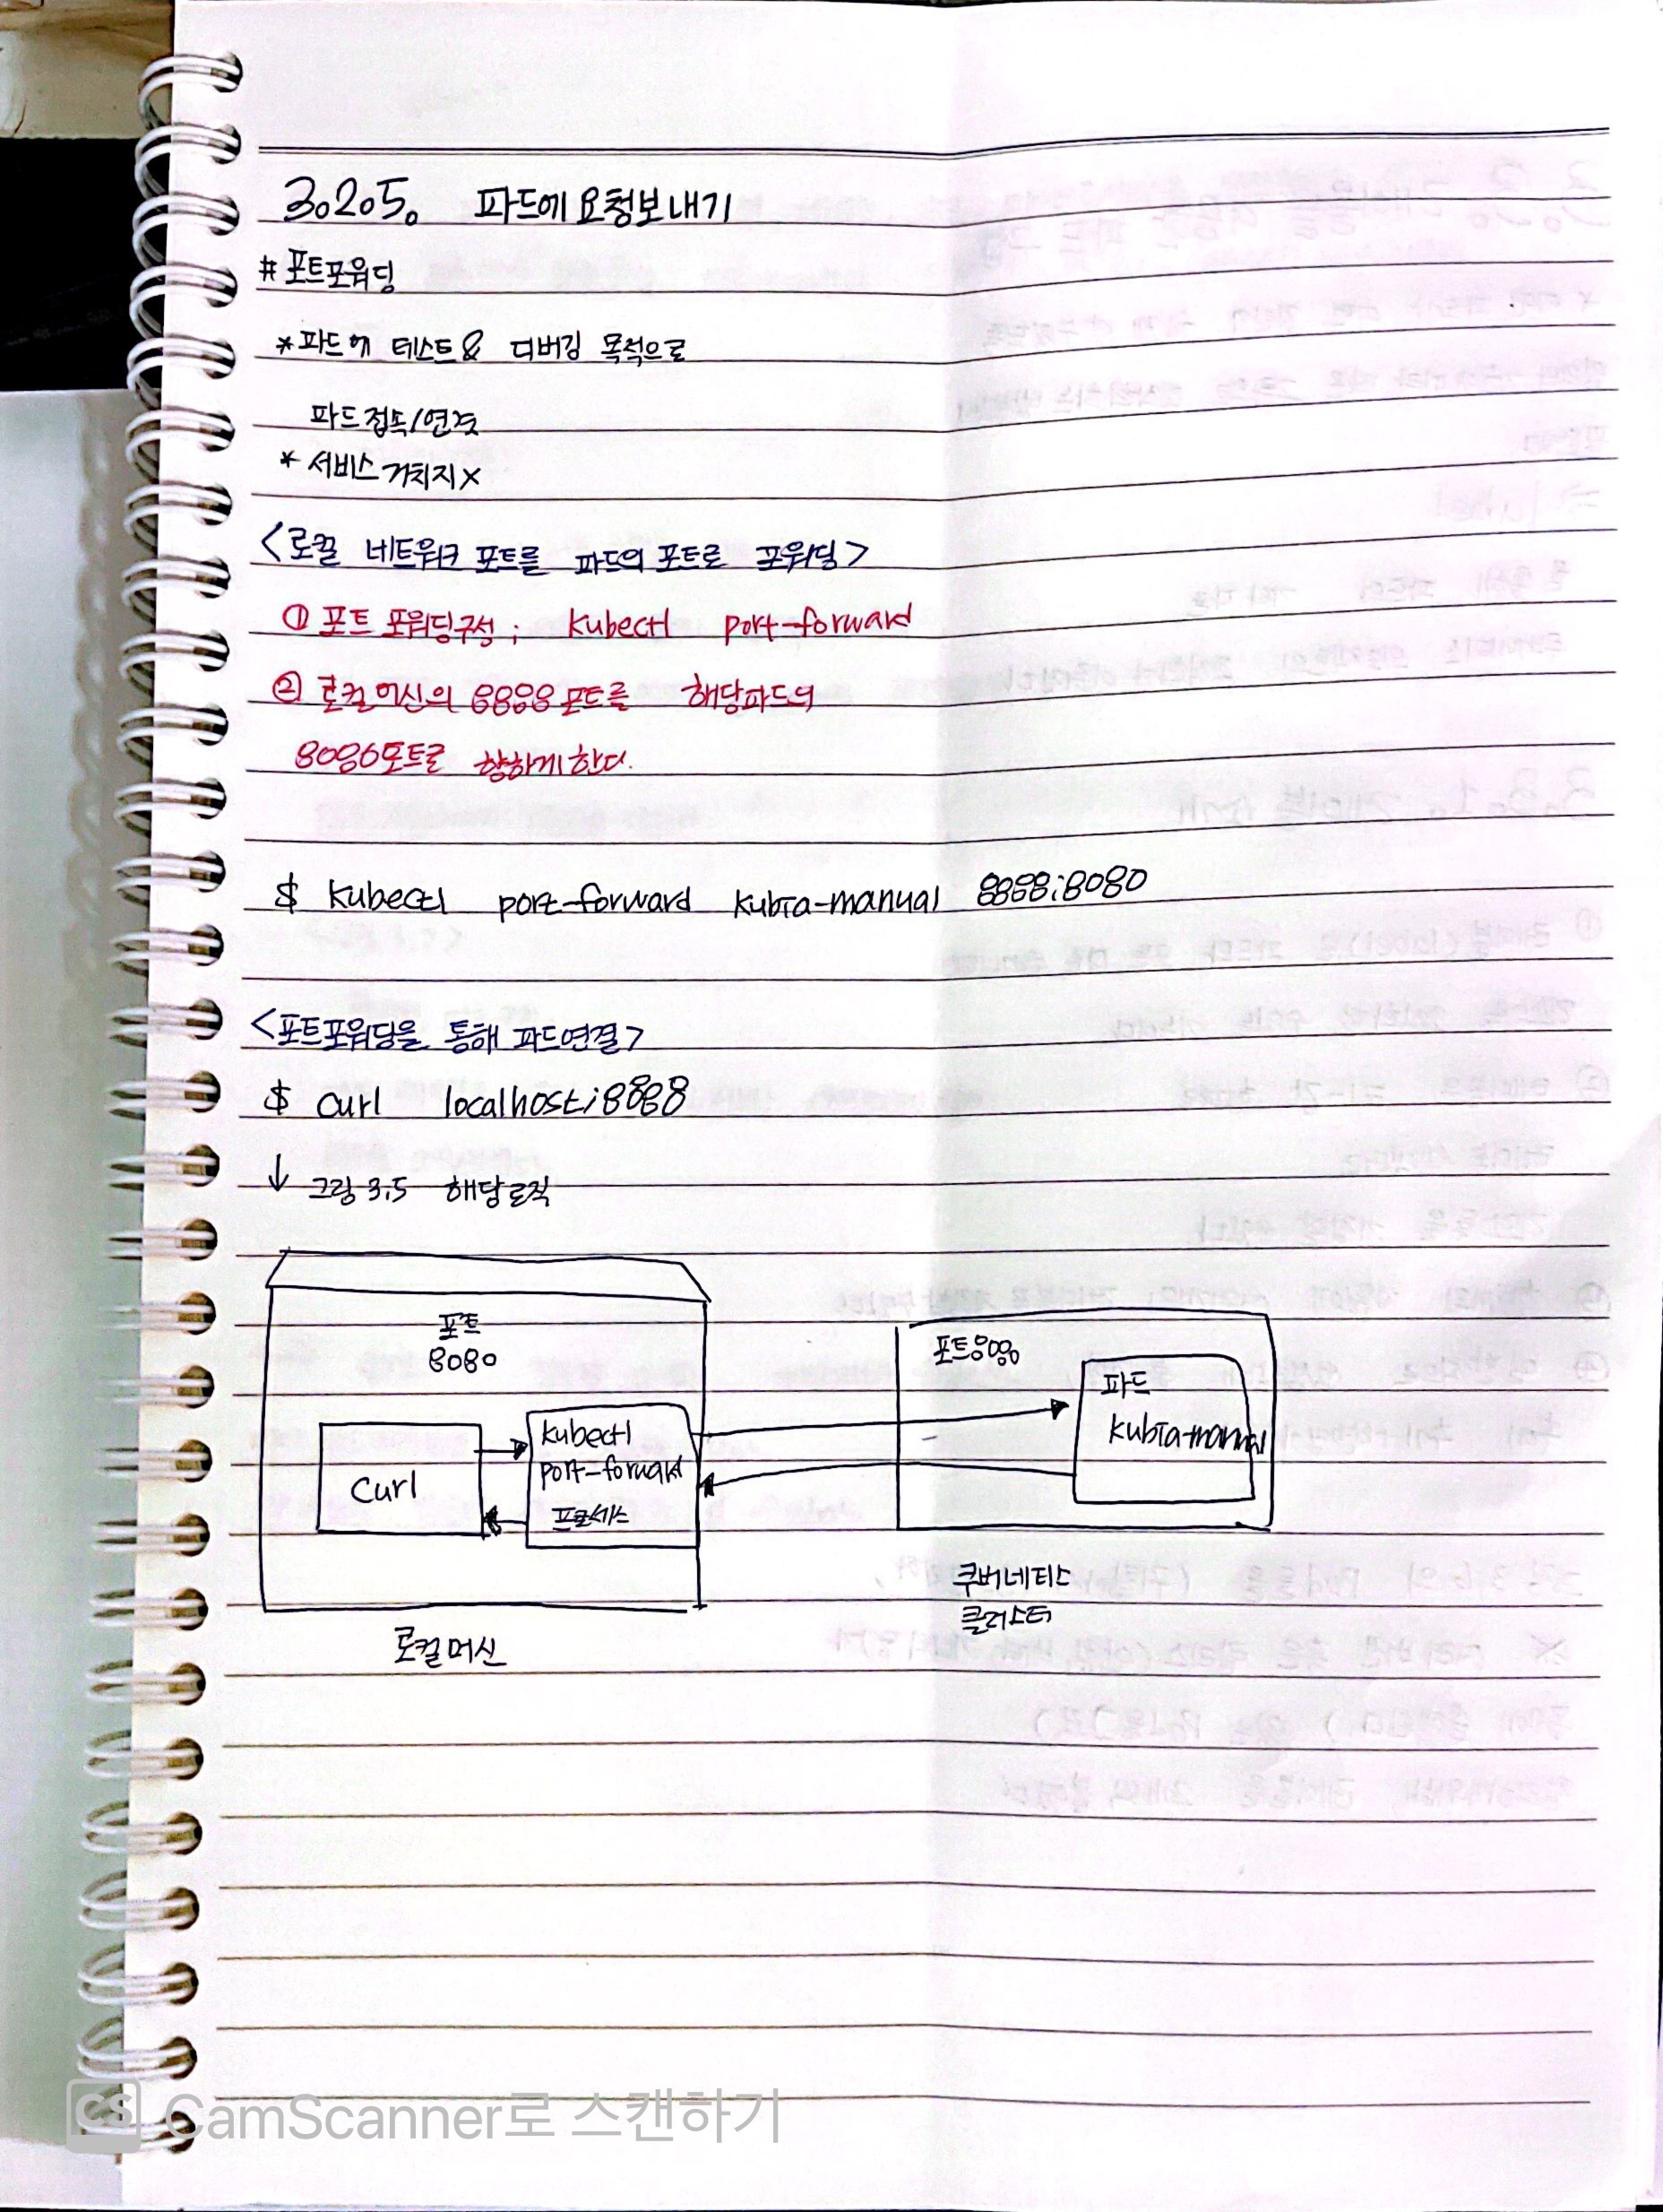 3.2.5. 파드에 요청보내기
# 포트포워딩
* 파드에 테스트 & 디버깅 목적으로
파드접속/연결
* 서비스 거치지 X
<로컬 네트워크 포트를 파드의 포트로 포워딩>
① 포트 포워딩구성 ; kubectl port-forward
② 로컬머신의 8888포트를 해당파드의
8080포트로 향하게 한다.
$ kubectl port-forward kubia-manual 8888:8080
<포트포워딩을 통해 파드연결>
$ curl localhost:8888
↓ 그림 3.5 해당로직
포트
8080
curl
kubectl
port-forward
프로세스
로컬머신
포트8080
파드
kubia-manual
쿠버네티스
클러스터
CS CamScanner로 스캔하기